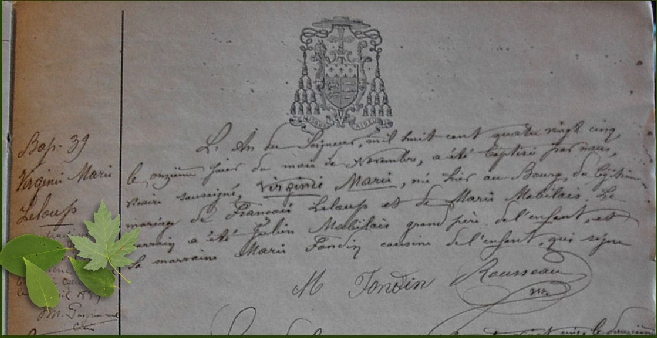 Bap. 39
Virginie Marie
Leloup
L'An du Seigneur, mil huit cent quatre vingt cinq,
le onzième jour du mois de Novembre, a été baptisée par nous,
vicaire soussigné, Virginie Marie, née hier au Bourg, du légitime
mariage de François Leloup et de Marie Mabilais. Le
parrain a été Julien Mabilais grand père de l'enfant, et
la marraine Marie Tondin cousine de l'enfant, qui signe
M Tondin Rousseau